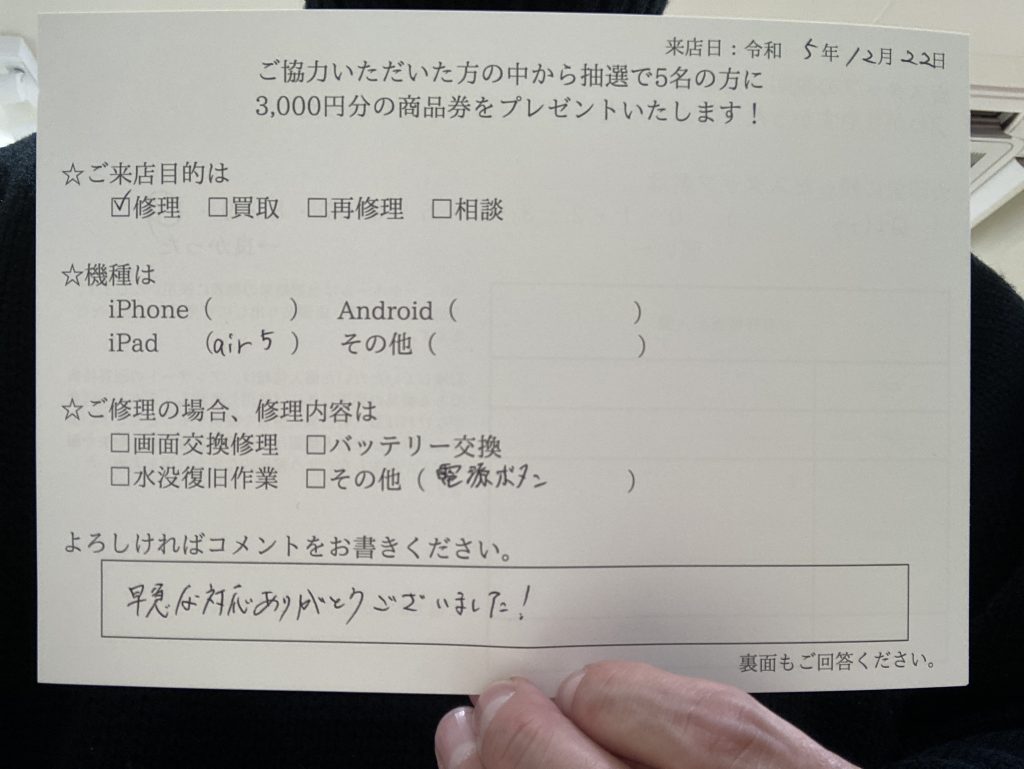 来店日：令和 5年12月22日
ご協力いただいた方の中から抽選で5名の方に
3,000円分の商品券をプレゼントいたします！
☆ご来店目的は
☑修理 □買取 □再修理 □相談
☆機種は
iPhone（ ） Android（ ）
iPad （air 5 ） その他（ ）
☆ご修理の場合、修理内容は
□画面交換修理 □バッテリー交換
□水没復旧作業 □その他（電源ボタン ）
よろしければコメントをお書きください。
早急な対応ありがとうございました！
裏面もご回答ください。